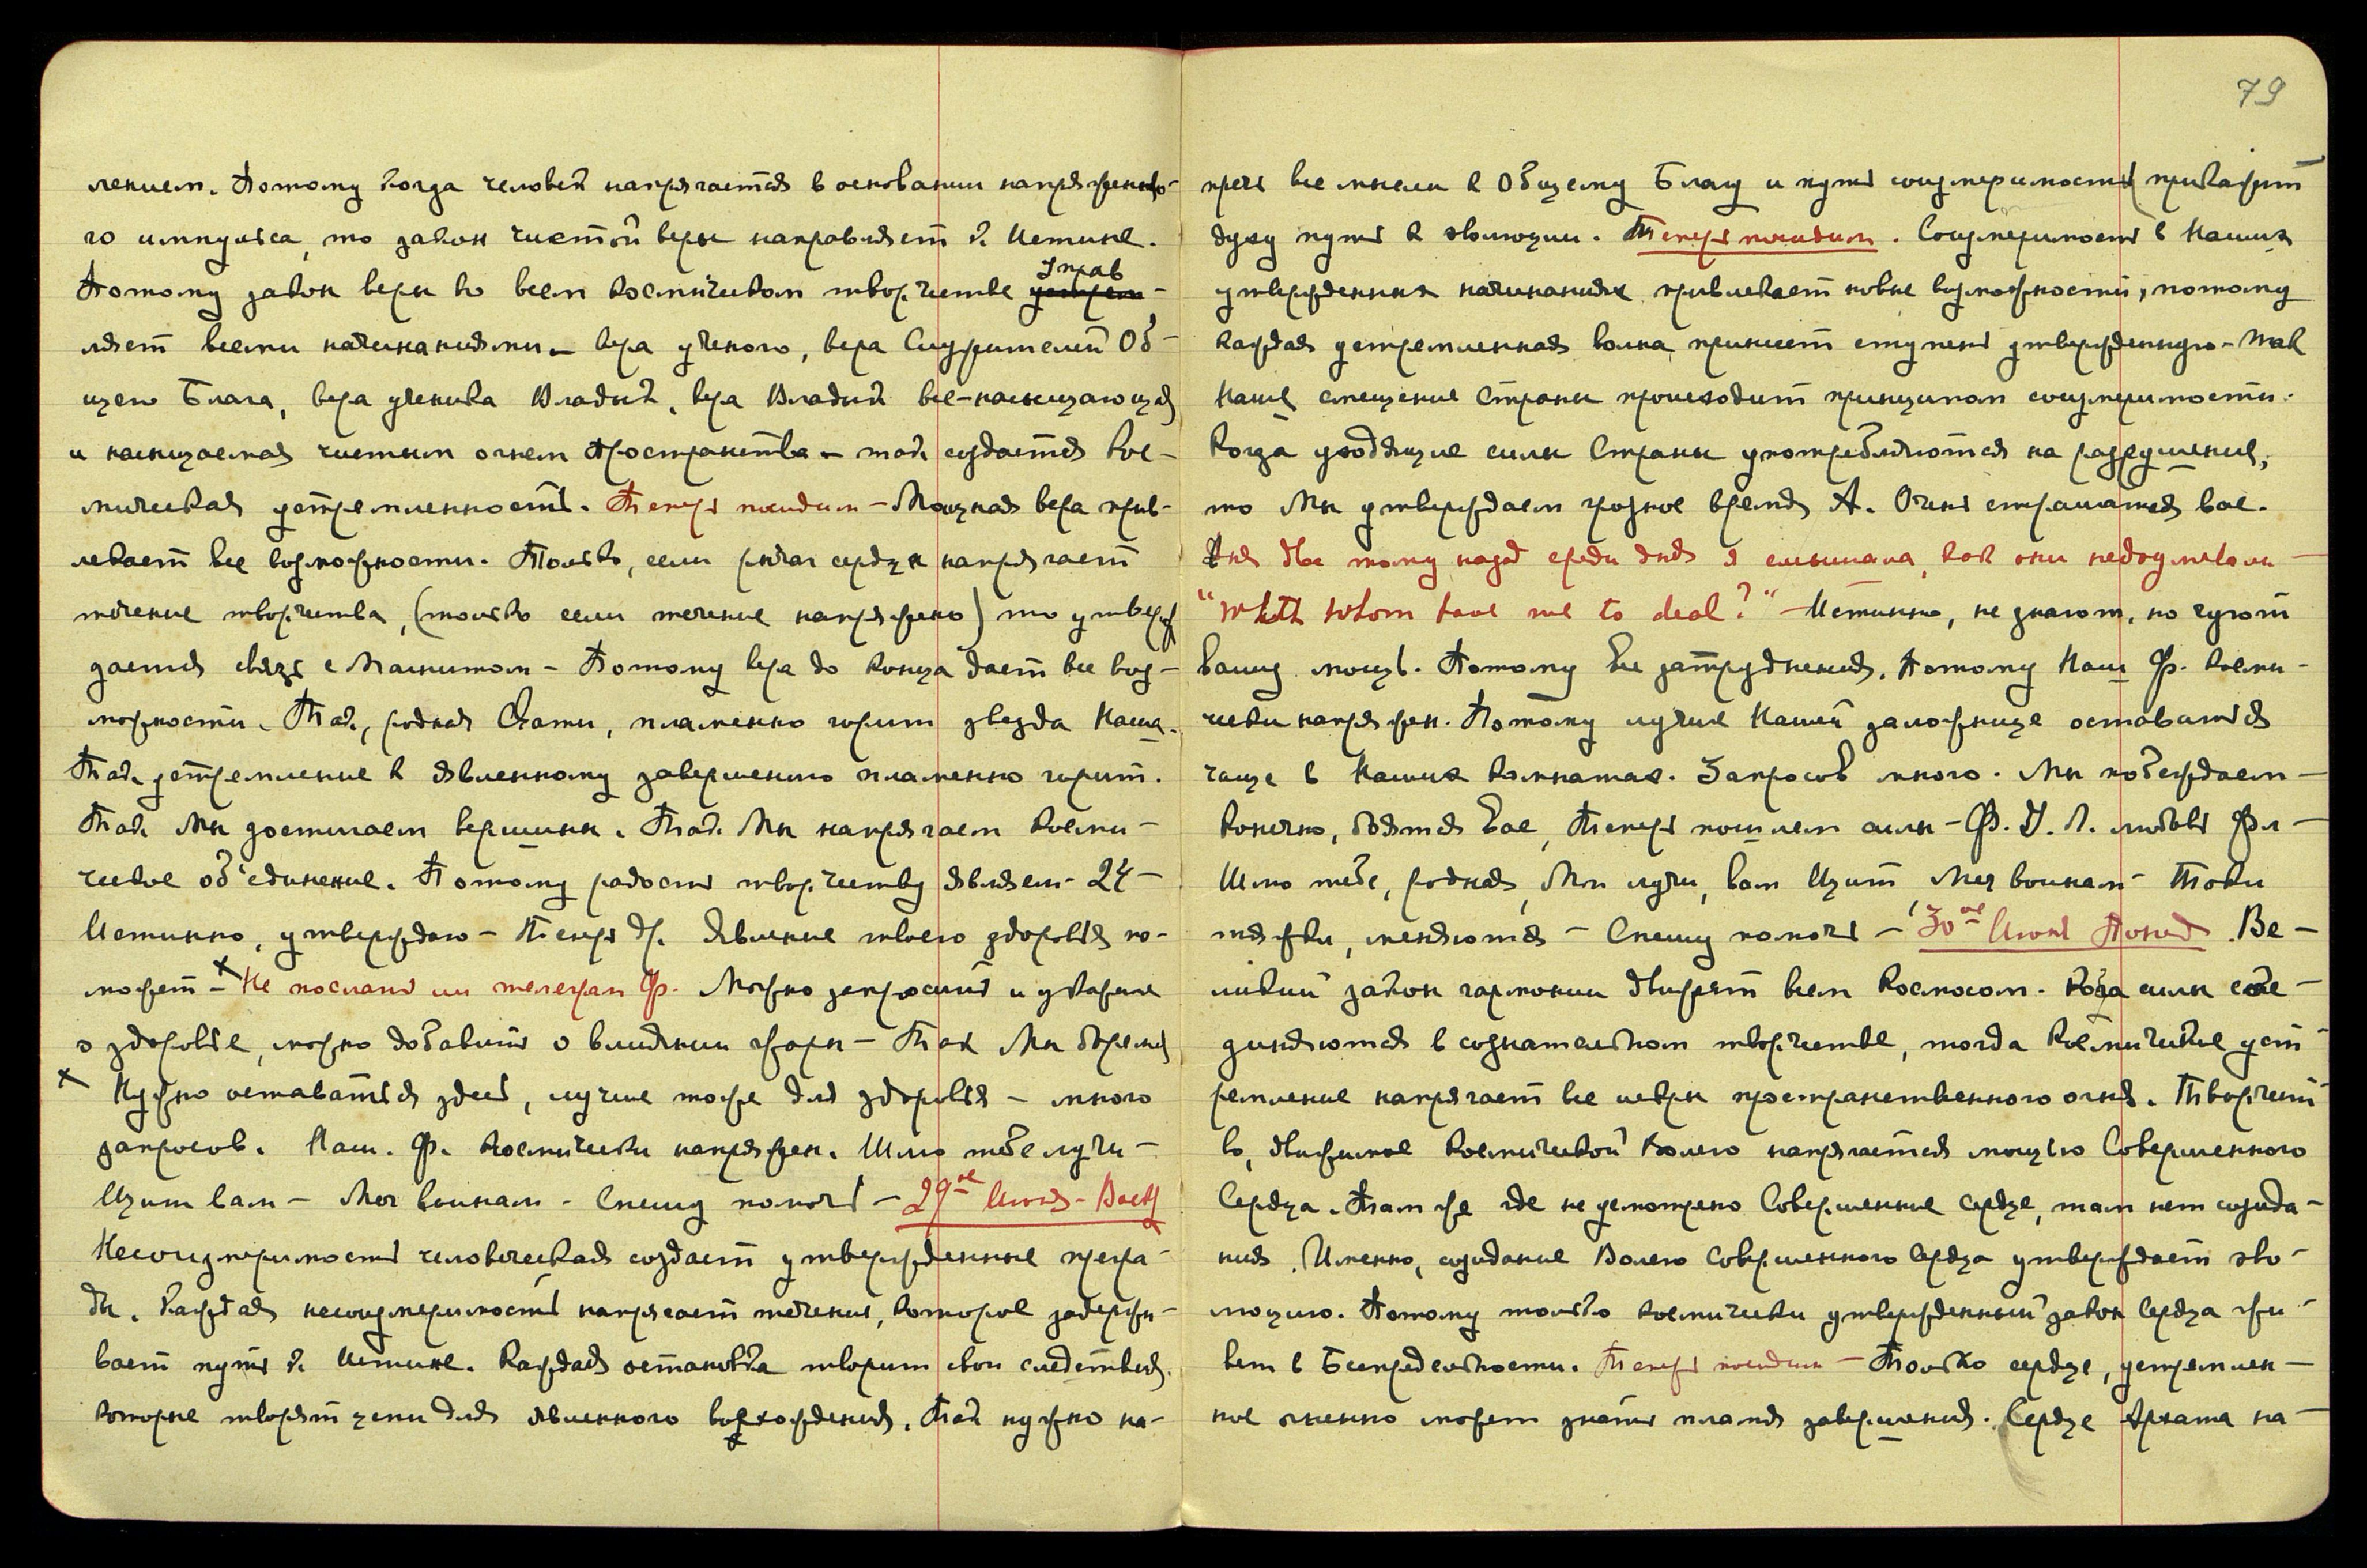 79
лением. Потому когда человек напрягается в основании напряженно-
го импульса, то закон чистой веры направляет к Истине.
Потому закон веры во всем космическом творчестве управ-
ляет всеми начинаниями – вера ученого, вера Служителей Об-
щего Блага, вера ученика Владык, вера Владык все-насыщающая
и насыщаемая чистым огнем Пространства – так создается кос-
мическая устремленность. Теперь посидим – Мощная вера прив-
лекает все возможности. Только, если рычаг сердца напрягает
течение творчества, (только если течение напряжено) то утверж
дается связь с Магнитом – Потому вера до конца дает все воз-
можности. Так, родная Свати, пламенно горит звезда Наша.
Так устремление к явленному завершению пламенно горит.
Так Мы достигаем вершины. Так Мы напрягаем косми-
ческое об'единение. Потому радость творчеству являем – 24 –
Истинно, утверждаю – Теперь др. Явление твоего здоровья по-
может – х Не послать ли телеграм Ф. Можно запросить и указание
о здоровье, можно добавить о влиянии жары – Так Мы бережем
х Нужно оставаться здесь, лучше тоже для здоровья – много
запросов. Наш. Ф. космически напряжен. Шлю тебе лучи –
Щит вам – Меч воинам – Спешу помочь – 29ое Июня – Воскр
Несоизмеримость человеческая создает утвержденные прегра-
ды. Каждая несоизмеримость напрягает течения, которое задержи-
вает путь к Истине. Каждая остановка творит свои следствия,
которые творят цепи для явленного восхождения. Так нужно на-
прячь все мысли к Общему Благу и путь соизмеримости прикажет
духу путь к эволюции. Теперь посидим. Соизмеримость в Наших
утвержденных начинаниях привлекает новые возможности, потому
каждая устремленная волна принесет ступень утвержденную – так
Наше смещение Страны происходит принципом соизмеримости.
Когда уходящие силы Страны употребляются на разрушение,
то Мы утверждаем грозное время А. Очень страшатся вас.
Дня два тому назад среди дня я слышала, как они недоумевали –
"With whom have we to deal?" – Истинно, не знают, но чуют
вашу мощь. Потому все затруднения, потому Наш Ф. косми-
чески напряжен. Потому лучше Нашей заложнице оставаться
чаще в Наших комнатах. Запросов много. Мы побеждаем –
Конечно, боятся вас, Теперь пошлем силы – Ф. У. Л. любовь Фл –
Шлю тебе, родная, Мои лучи, вам Щит, Меч воинам – Токи
тяжки, меняются – Спешу помочь – 30ое Июня Понед. Ве-
ликий закон гармонии движет всем Космосом. Когда силы сое-
диняются в сознательном творчестве, тогда космическое уст
ремление напрягает все искры пространственного огня. Творчест
во, движимое космической волею напрягается мощью Совершенного
Сердца. Там же где не усмотрено Совершенное сердце, там нет созида-
ния. Именно, созидание Волею Совершенного Сердца утверждает эво-
люцию. Потому только космически утвержденный закон Сердца жи-
вет в Беспредельности. Теперь посидим – Только сердце, устремлен-
ное огненно может знать пламя завершения. Сердце Архата на-